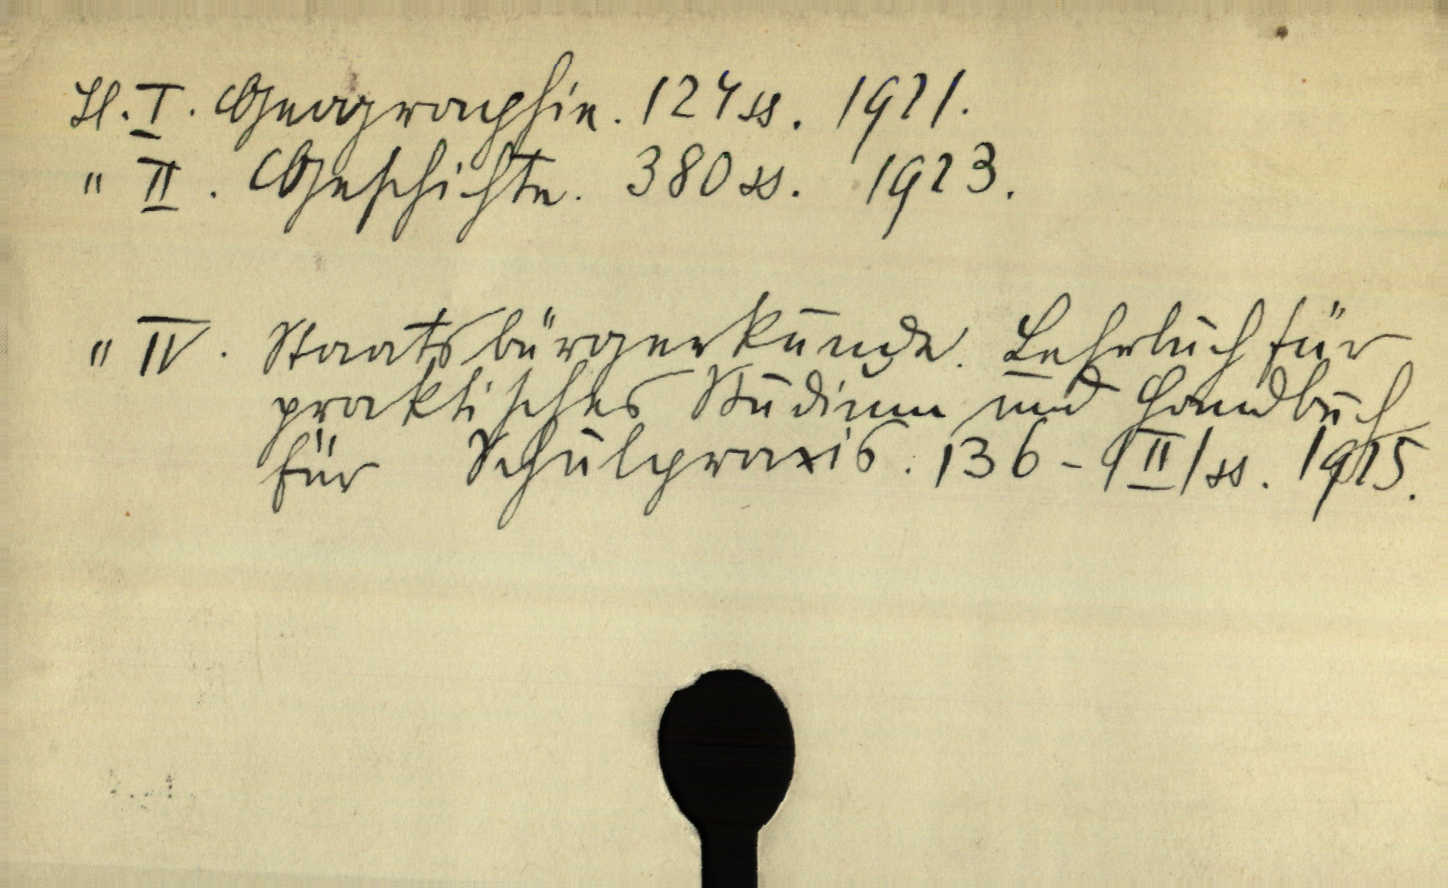 Tl. I. Geographie. 124 ss. 1921.
" II. Geschichte. 380 ss. 1923.
" IV. Staatsbürgerkunde. Lehrbuch für
praktisches Studium und Handbuch
für Schulpraxis. 136 - /II/ ss. 1925.